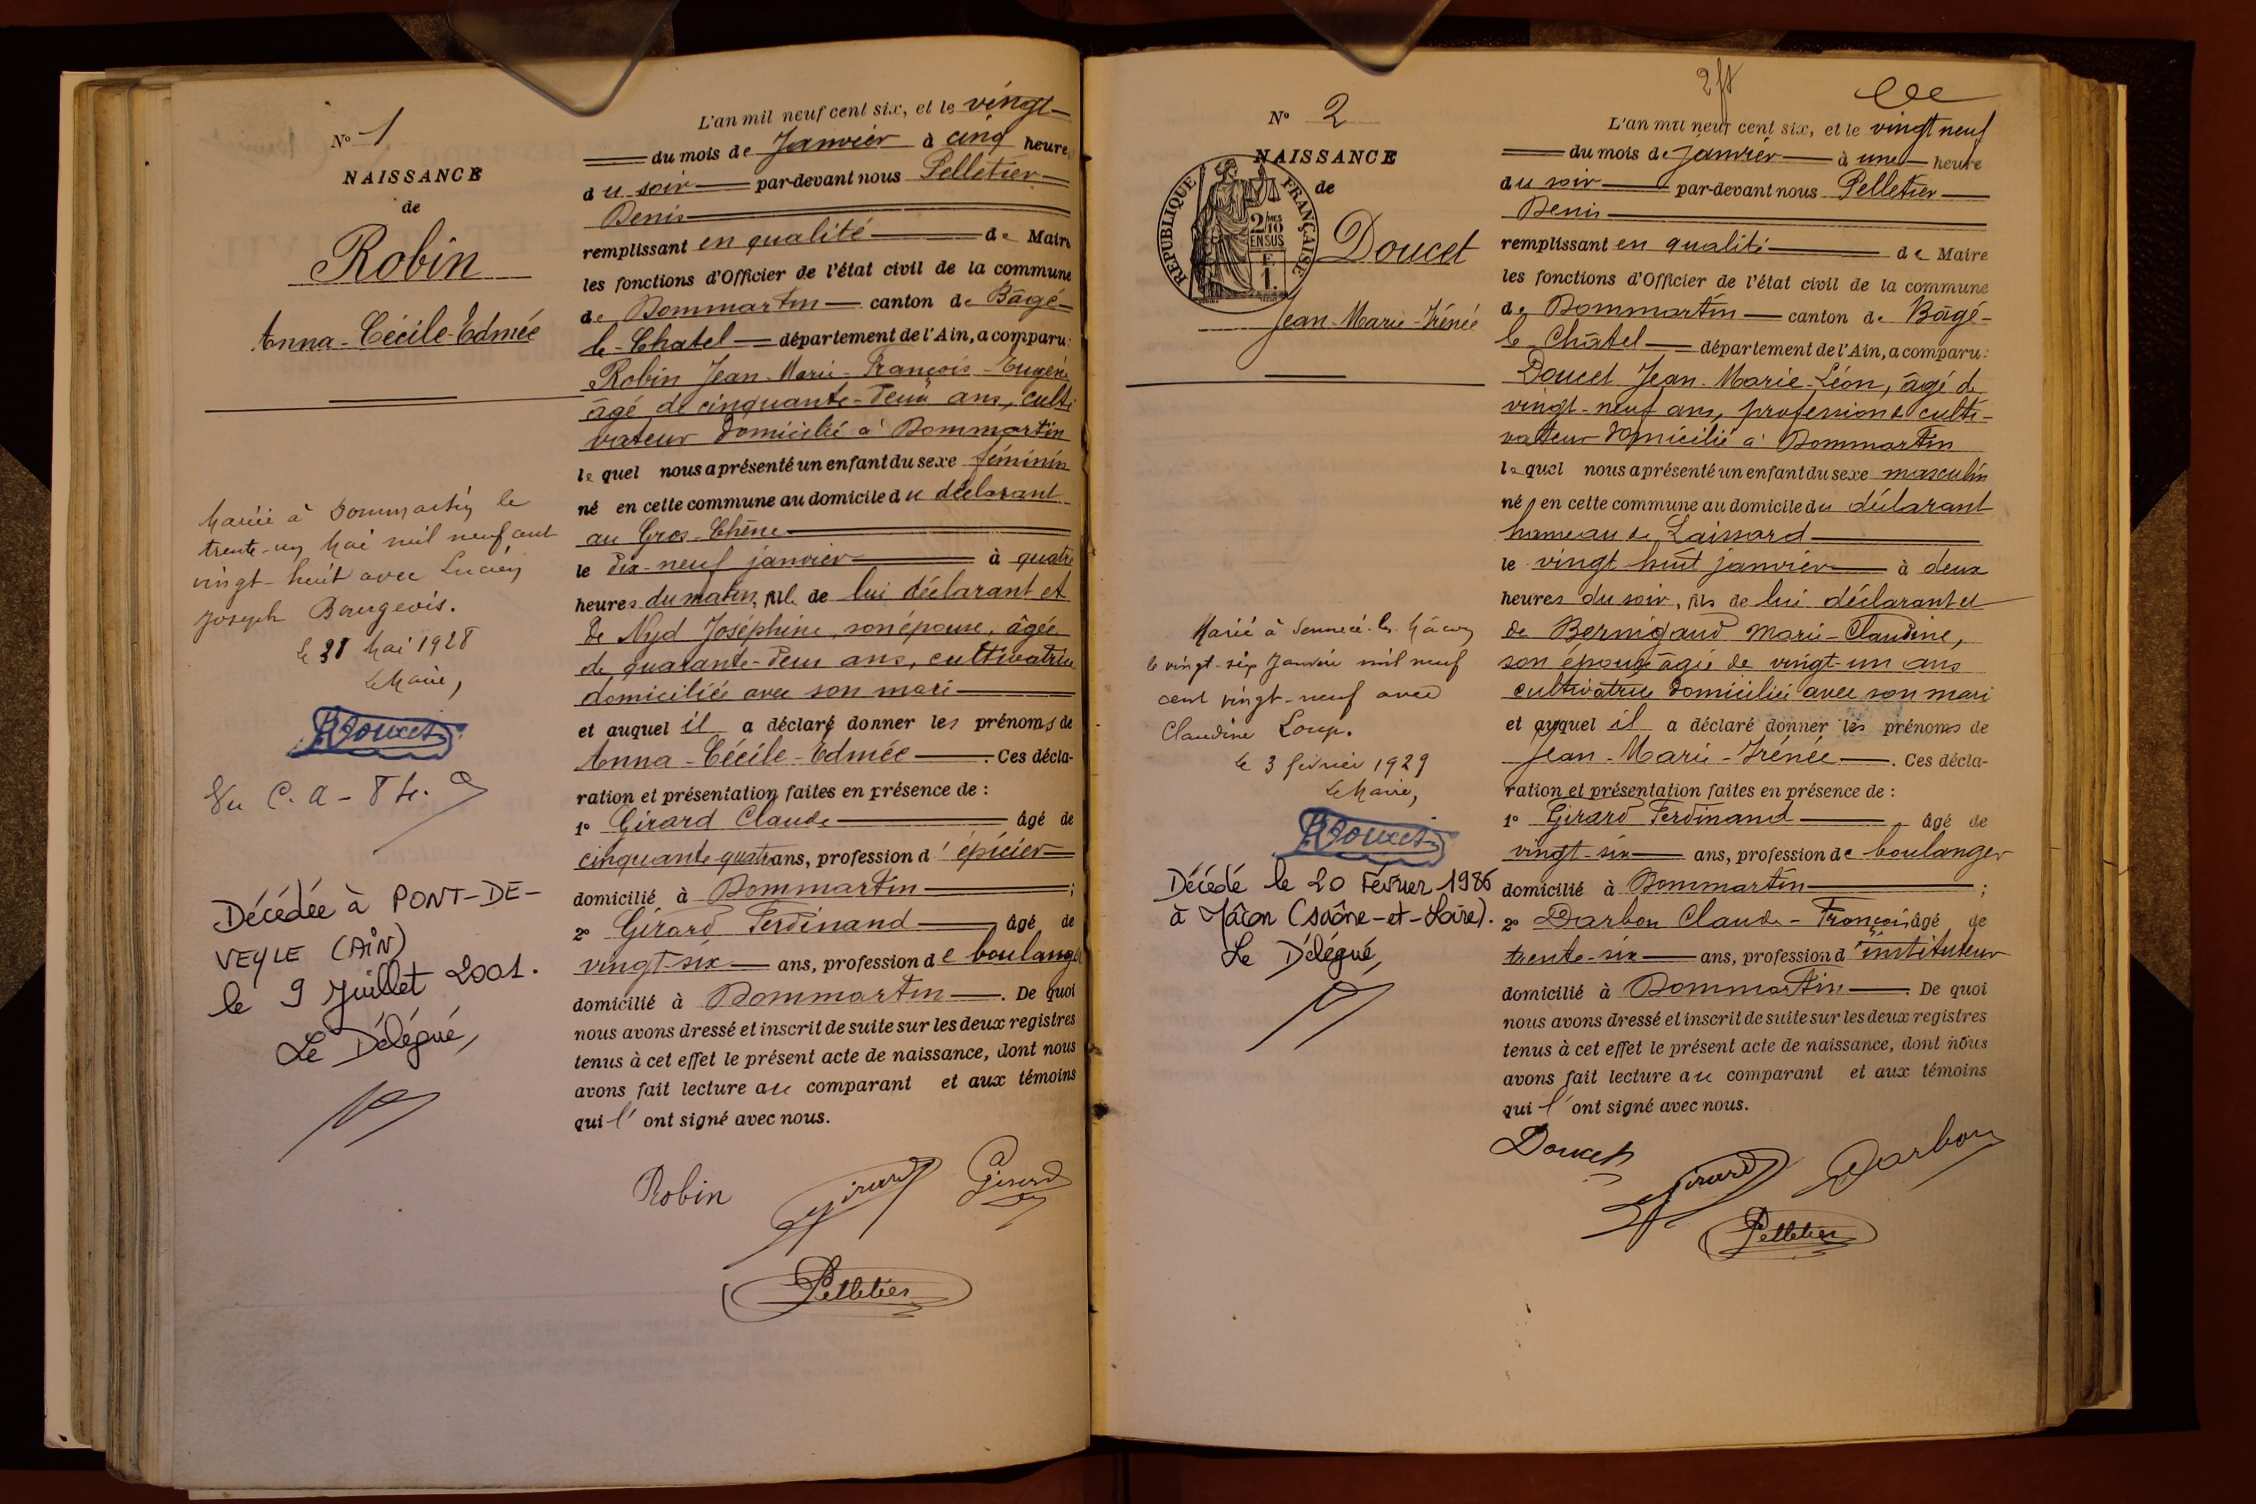 N° 1
NAISSANCE
de
Robin
Anna-Cécile-Edmée
Mariée à Dommartin le
trente-un Mai mil neuf cent
vingt-huit avec Lucien
Joseph Bourgeois.
le 31 Mai 1928
Le Maire,
Doucet
Vu C.A -
Décédée à PONT-DE-
VEYLE (AIN)
le 9 Juillet 2001.
Le Délégué,
L'an mil neuf cent six, et le vingt
du mois de Janvier à cinq heures
du soir par-devant nous Pelletier
Denis
remplissant en qualité de Maire
les fonctions d'Officier de l'état civil de la commune
de Dommartin canton de Bâgé-
le-Chatel département de l'Ain, a comparu:
Robin Jean-Marie-François-Eugène
âgé de cinquante-deux ans, culti
vateur domicilié à Dommartin
lequel nous a présenté un enfant du sexe féminin
né en cette commune au domicile du déclarant
au Gros-Chêne
le dix-neuf janvier à quatre
heures du matin, fille de lui déclarant et
de Nyd Joséphine, son épouse, âgée
de quarante-deux ans, cultivatrice
domiciliée avec son mari
et auquel il a déclaré donner les prénoms de
Anna-Cécile-Edmée. Ces décla-
ration et présentation faites en présence de :
1° Girard Claude âgé de
cinquante-quatre ans, profession d'épicier
domicilié à Dommartin ;
2° Girard Ferdinand âgé de
vingt-six ans, profession de boulanger
domicilié à Dommartin. De quoi
nous avons dressé et inscrit de suite sur les deux registres
tenus à cet effet le présent acte de naissance, dont nous
avons fait lecture au comparant et aux témoins
qui l'ont signé avec nous.
Robin Girard Girard
Pelletier
2 ft
N° 2
NAISSANCE
de
RÉPUBLIQUE FRANÇAISE
2/10 EN SUS
F. 1.
Doucet
Jean-Marie-Irénée
Marié à Sennecé-les-Mâcon
le vingt-six Janvier mil neuf
cent vingt-neuf avec
Claudine Loup.
le 3 février 1929
Le Maire,
Doucet
Décédé le 20 Février 1986
à Mâcon (Saône-et-Loire).
Le Délégué,
L'an mil neuf cent six, et le vingt neuf
du mois de janvier à une heure
du soir par-devant nous Pelletier
Denis
remplissant en qualité de Maire
les fonctions d'Officier de l'état civil de la commune
de Dommartin canton de Bâgé-
le Châtel département de l'Ain, a comparu:
Doucet Jean-Marie-Léon, âgé de
vingt-neuf ans, profession de culti-
vateur domicilié à Dommartin
lequel nous a présenté un enfant du sexe masculin
né en cette commune au domicile du déclarant
hameau de Laissard
le vingt huit janvier à deux
heures du soir, fils de lui déclarant et
de Bernigaud Marie-Claudine,
son épouse âgée de vingt-un ans
cultivatrice domiciliée avec son mari
et auquel il a déclaré donner les prénoms de
Jean-Marie-Irénée. Ces décla-
ration et présentation faites en présence de :
1° Girard Ferdinand âgé de
vingt-six ans, profession de boulanger
domicilié à Dommartin ;
2° Darbon Claude-François âgé de
trente-six ans, profession d'instituteur
domicilié à Dommartin. De quoi
nous avons dressé et inscrit de suite sur les deux registres
tenus à cet effet le présent acte de naissance, dont nous
avons fait lecture au comparant et aux témoins
qui l'ont signé avec nous.
Doucet Girard Darbon
Pelletier